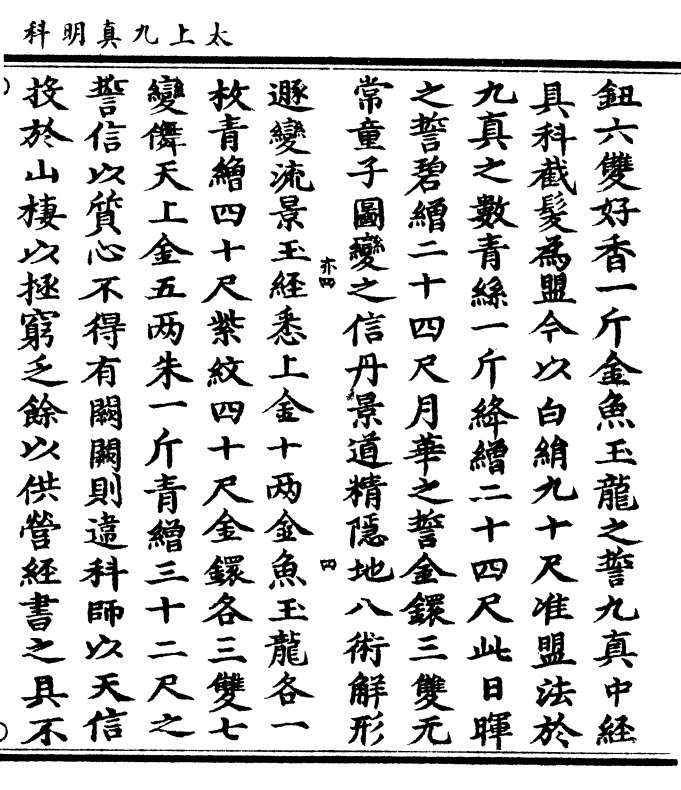 太上九真明科
鈕六雙好香一斤金魚玉龍之誓九真中經
具科截髮為盟今以白絹九十尺准盟法於
九真之數青絲一斤絳繒二十四尺此日暉
之誓碧繒二十四尺月華之誓金鐶三雙元
常童子圖變之信丹景道精隱地八術解形
亦四
四
遯變流景玉經悉上金十两金魚玉龍各一
枚青繒四十尺紫紋四十尺金鐶各三雙七
變儛天上金五两朱一斤青繒三十二尺之
誓信以質心不得有闕闕則違科師以天信
投於山棲以拯窮乏餘以供營經書之具不